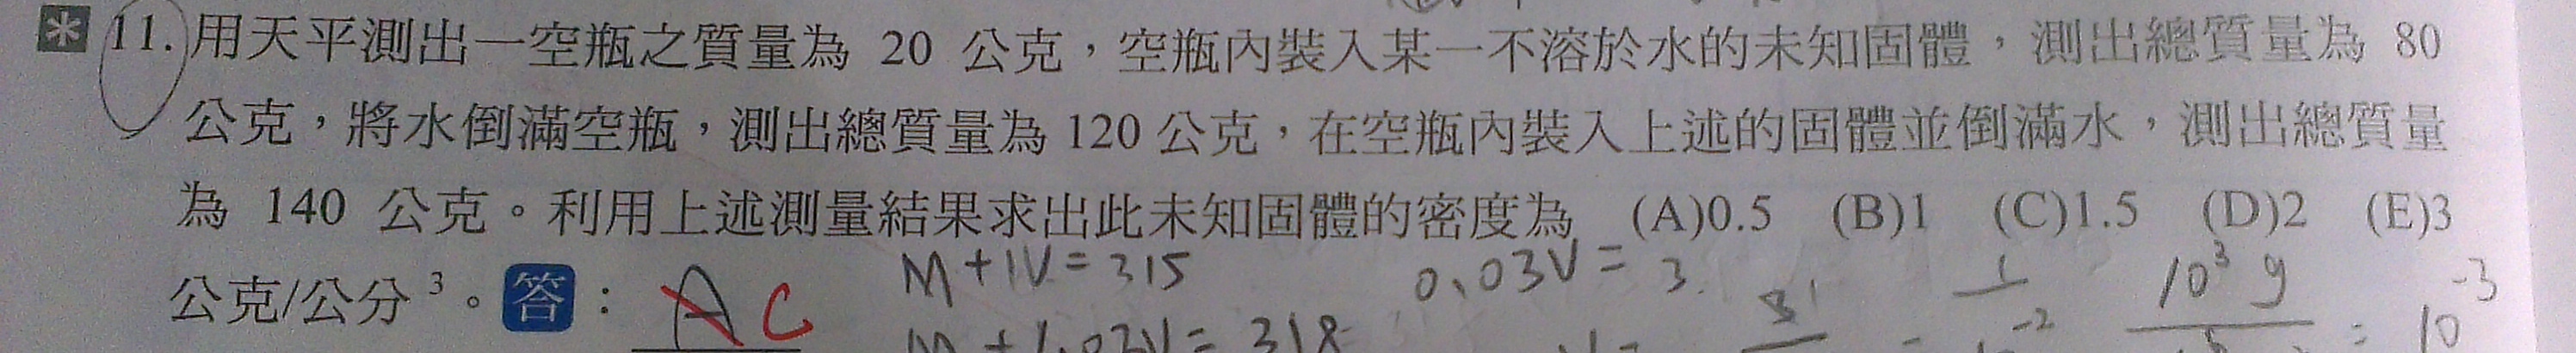 * 11. 用天平測出一空瓶之質量為 20 公克，空瓶內裝入某一不溶於水的未知固體，測出總質量為 80
公克，將水倒滿空瓶，測出總質量為 120 公克，在空瓶內裝入上述的固體並倒滿水，測出總質量
為 140 公克。利用上述測量結果求出此未知固體的密度為 (A)0.5 (B)1 (C)1.5 (D)2 (E)3
公克/公分³。答： A C
M+1V=315 0.03V=3
M+1.03V=318 10³ g = 10⁻³